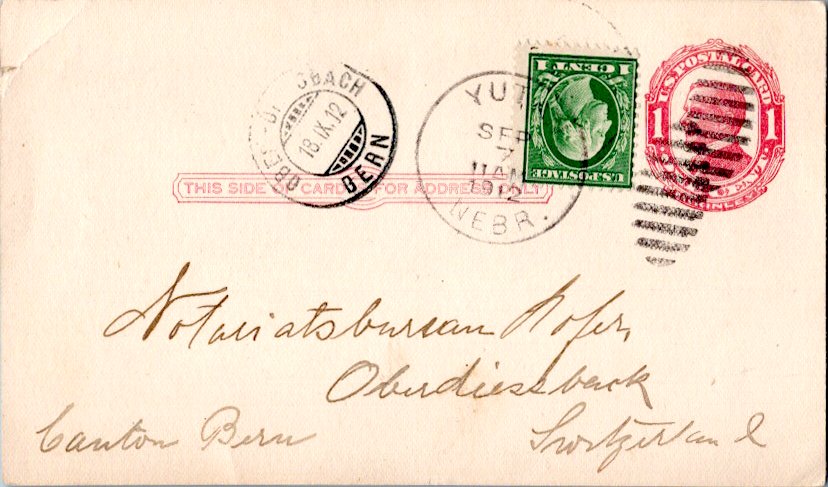 U.S. POSTAL CARD
1 1
1 CENT 1
U.S. POSTAGE
YUT
SEP
7
11 AM
1912
NEBR.
BACH
18.IX.12
BERN
THIS SIDE OF CARD IS FOR ADDRESS ONLY
Notariatsbureau Hofer,
Oberdiessback
Canton Bern Switzerland